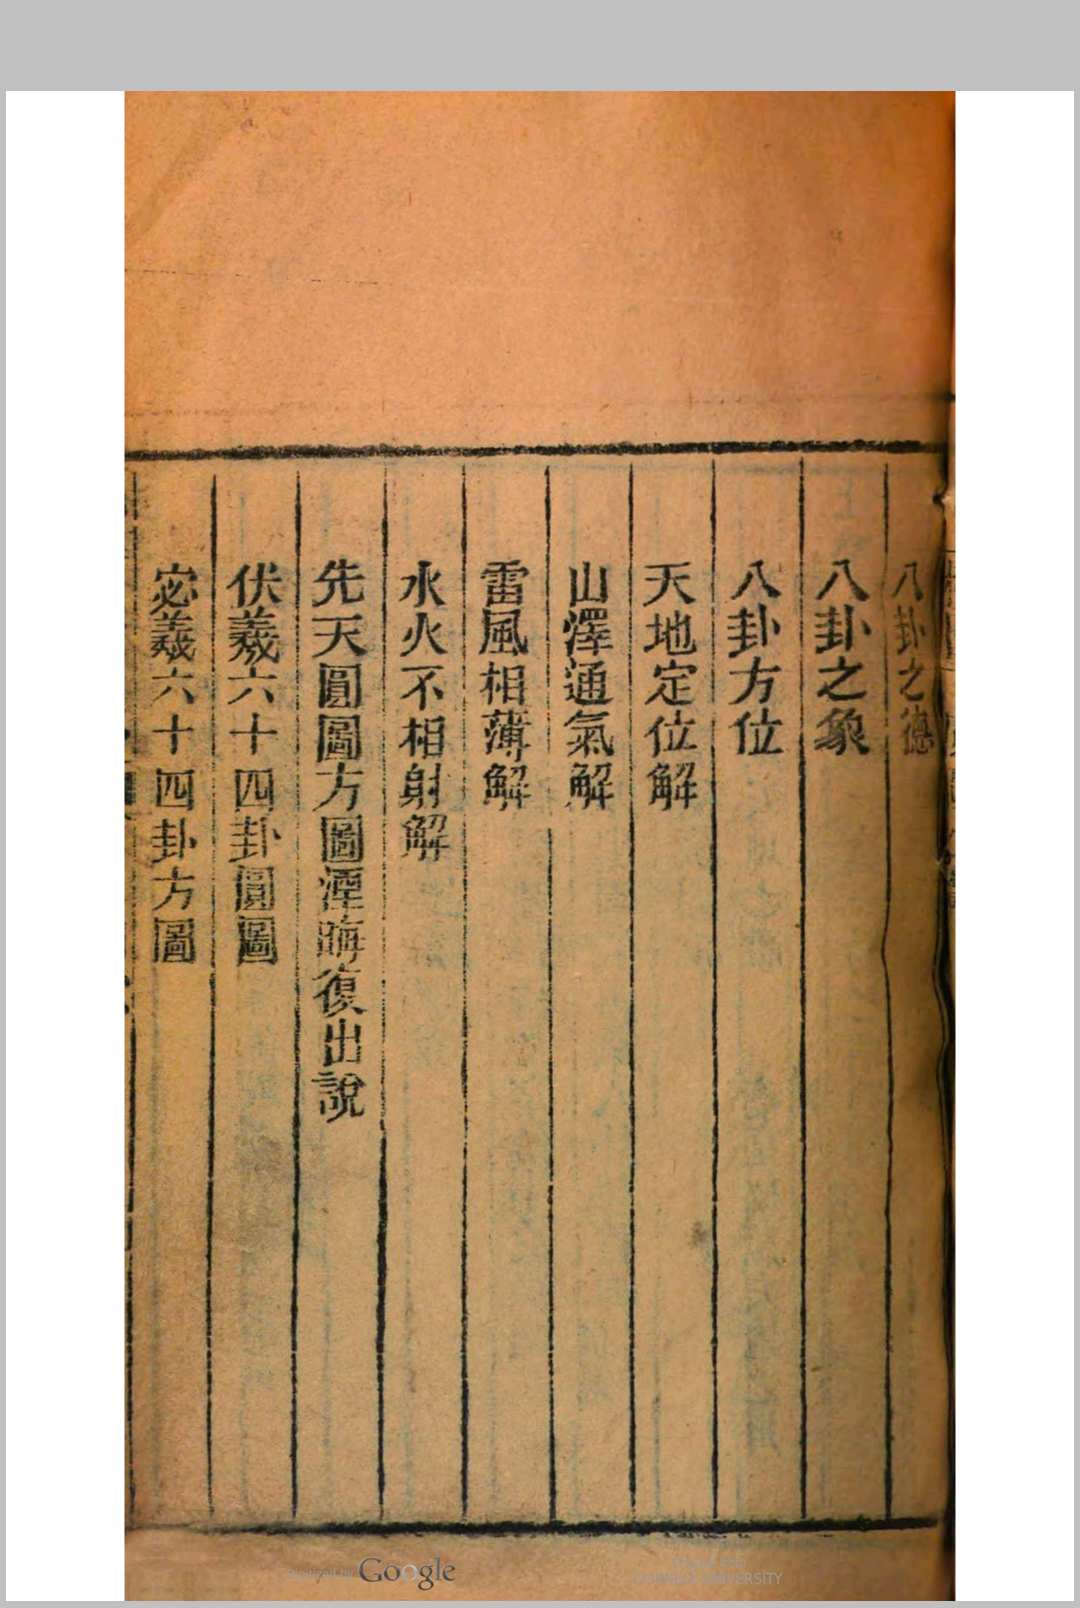 八卦之德
八卦之象
八卦方位
天地定位解
山澤通氣解
雷風相薄解
水火不相射解
先天圓圖方圖湮晦復出說
伏羲六十四卦圓圖
宓羲六十四卦方圖
Google